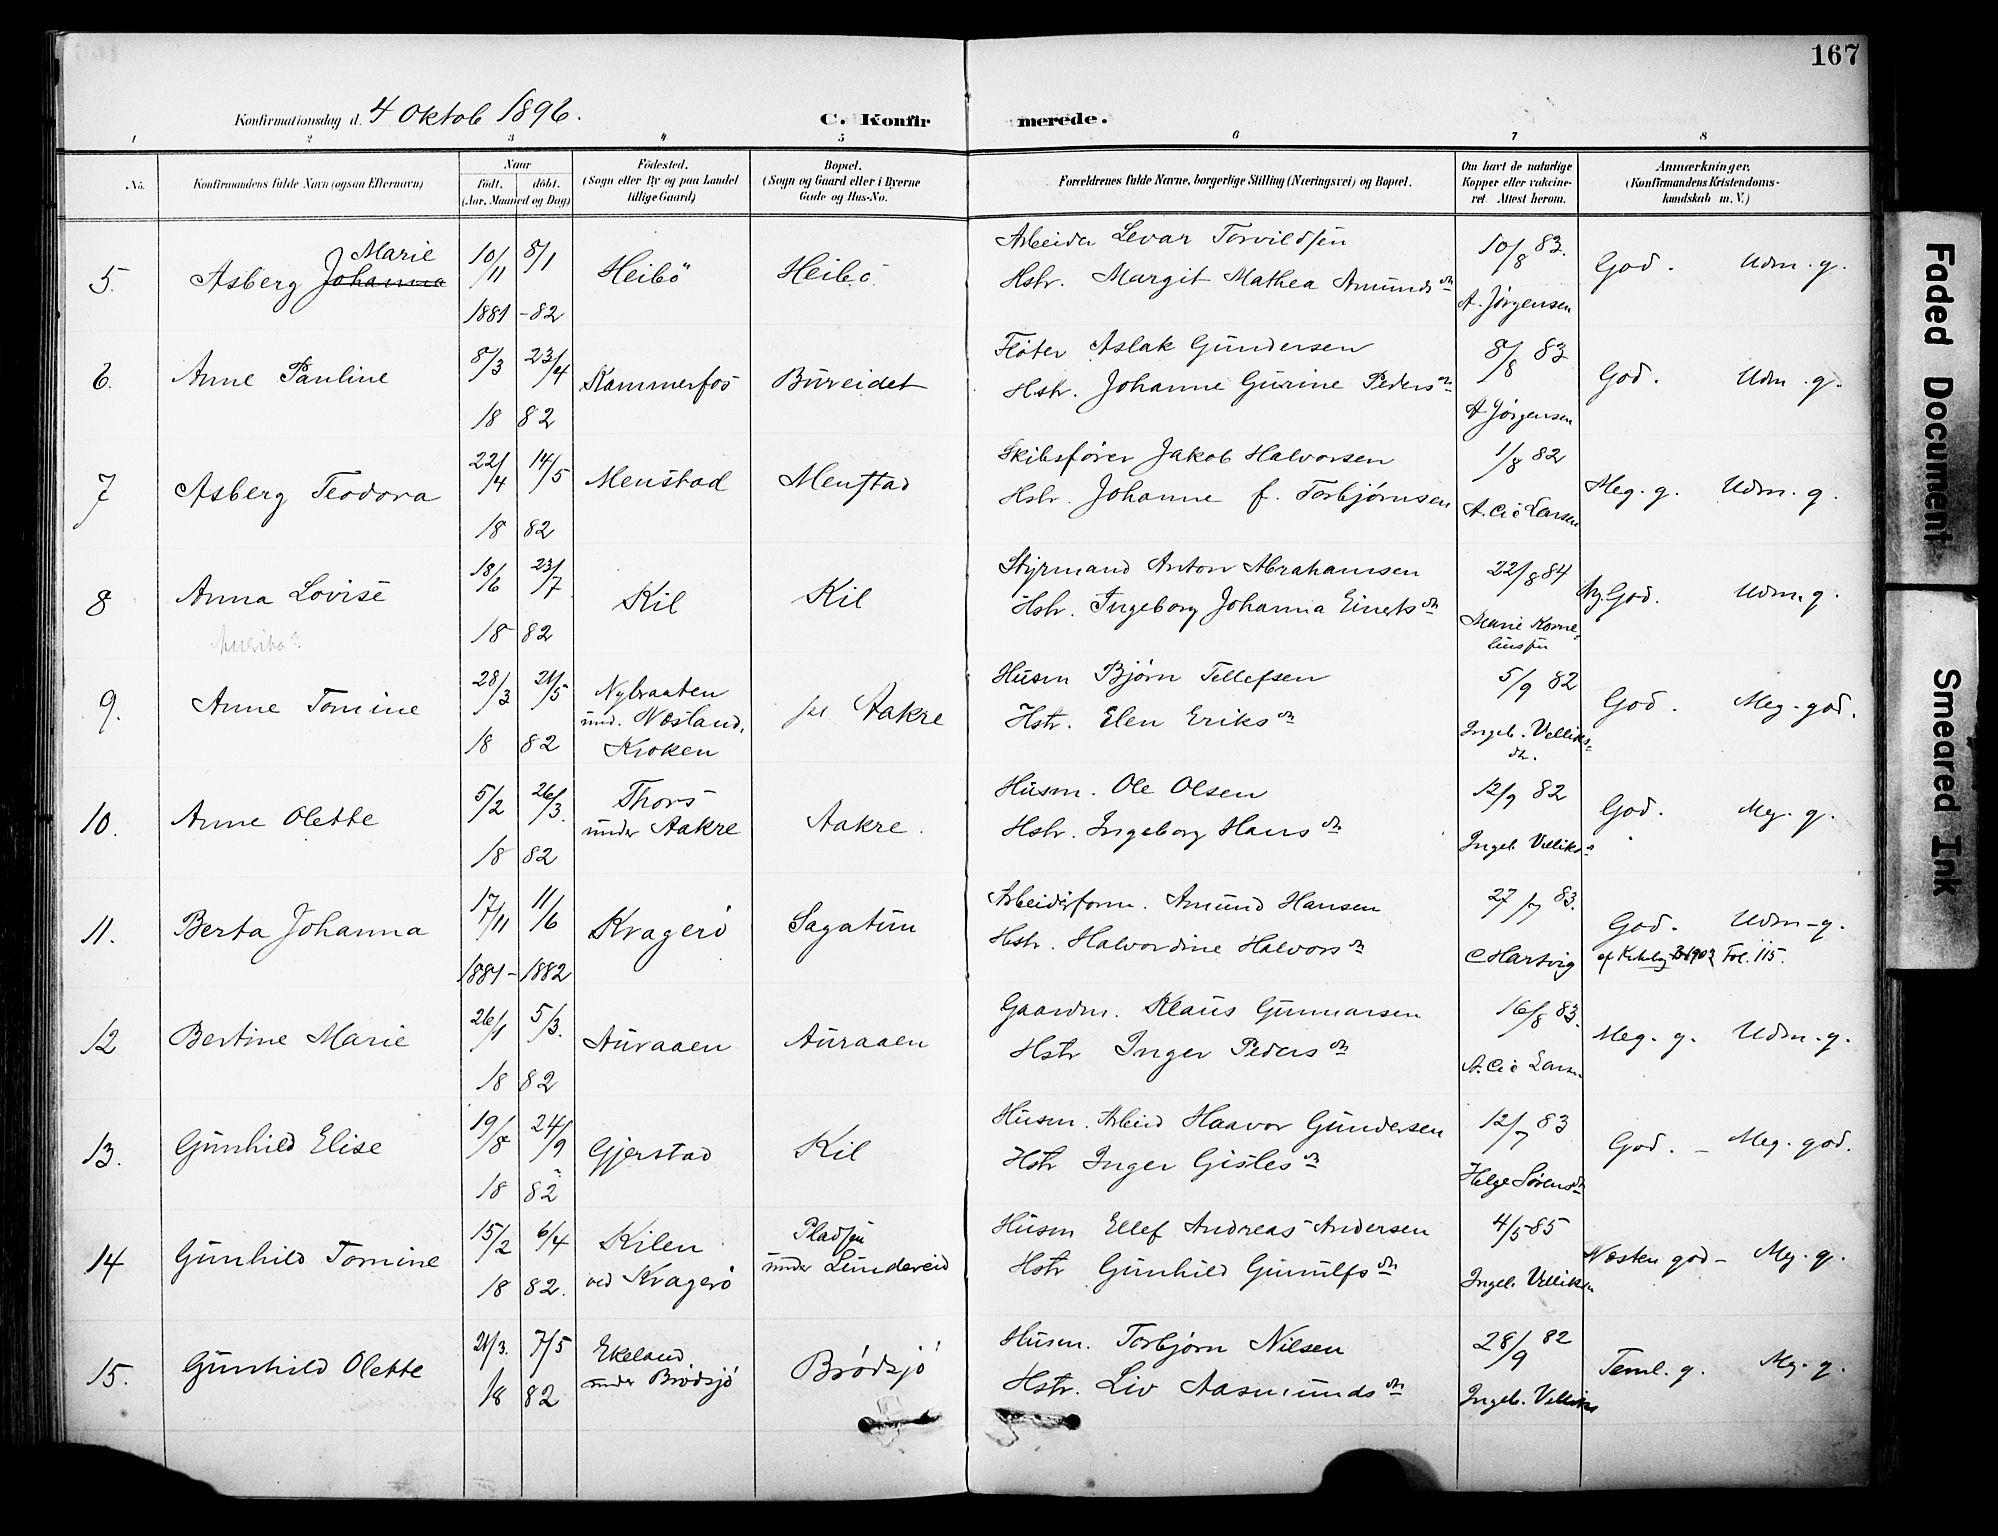 167
Konfirmationsdag d. 4 Oktob 1896.
C. Konfirmerede.
1 2 3 4 5 6 7 8
No. Konfirmandens fulde Navn (ogsaa Efternavn) Naar født. døbt. (Aar, Maaned og Dag) Fødested. (Sogn eller By og paa Landet tillige Gaard) Bopæl. (Sogn og Gaard eller i Byerne Gade og Hus-No. Forældrenes fulde Navne, borgerlige Stilling (Næringsvei) og Bopæl. Om havt de naturlige Kopper eller vakcineret. Attest herom. Anmærkninger. (Konfirmandens Kristendomskundskab m. V.)
5. Asberg Johanna Marie 10/11 1881 8/1 -82 Heibö Heibö
Arbeider Levar Torvildsen 10/8 83. God. Udm. g.
Hstr. Margit Mathea Amundsdtr A. Jørgensen
6. Anne Pauline 8/3 23/4 18 82 Kammerfos Bureidet
Fløter Aslak Gundersen 8/8 83 God. Udm. g.
Hstr. Johanne Gurine Pedersdtr A Jørgensen
7 Asberg Teodora 22/4 14/5 18 82 Menstad Menstad
Skibsfører Jakob Halvorsen 1/8 82 Meg. g. Udm. g.
Hstr. Johanne f. Torbjørnsen A. Cie Larsen
8 Anna Lovise 18/6 23/7 18 82 Kil Kil
Styrmand Anton Abrahamsen 22/8 84 Mg. God. Udm. g.
Hstr. Ingeborg Johanna Einertsdtr Marie Korneliussen
9. Anne Tomine 28/3 21/5 18 82 Nybraaten und. Næsland, Kroken Aakre
Husm Bjørn Tellefsen 5/9 82 God. Meg. god.
Hstr. Elen Eriksdtr Ingeb. Velliksdtr.
10. Anne Olette 5/2 26/3. 18 82 Thors under Aakre Aakre.
Husm. Ole Olsen 12/9 82 God. Meg. g.
Hstr. Ingeborg Hansdtr Ingeb. Velliksd
11. Berta Johanna 17/11 11/6 1881- 1882 Kragerö Sagatun
Arbeidsform. Amund Hansen 27/7 83. God. Udm-g.
Hstr. Halvordine Halvorsdtr C Hartvig Fol. 115.
12 Bertine Marie 26/1 5/3. 18 82 Auraaen Auraaen
Gaardm. Klaus Gunnarsen 16/8 83. Meg. g. Udm. g.
Hstr Inger Pedersdtr A. Cie Larsn
13. Gunhild Elise 19/8 24/9 18 82 Gjerstad Kil
Husm. Arbeid Haavor Gundersen 12/7 83 God. - Meg. god.
Hstr Inger Gislesdtr Helge Sørensdtr
14 Gunhild Tomine 15/2 6/4 18 82. Kilen ved Kragerö Pladsen under Lundereid
Husm Ellef Andreas Andersen 4/5 85 Næsten god - Mg. g.
Hstr Gunhild Gunulfsdtr Ingeb. Velliksn
15. Gunhild Olette 21/3. 7/5 18 82 Ekeland under Brødsjø Brødsjø
Husm. Torbjørn Nilsen 28/9 82 Teml. g. Mg. g.
Hstr. Liv Aasmundsdtr Ingeb. Velliks
Faded Document
Smeared Ink